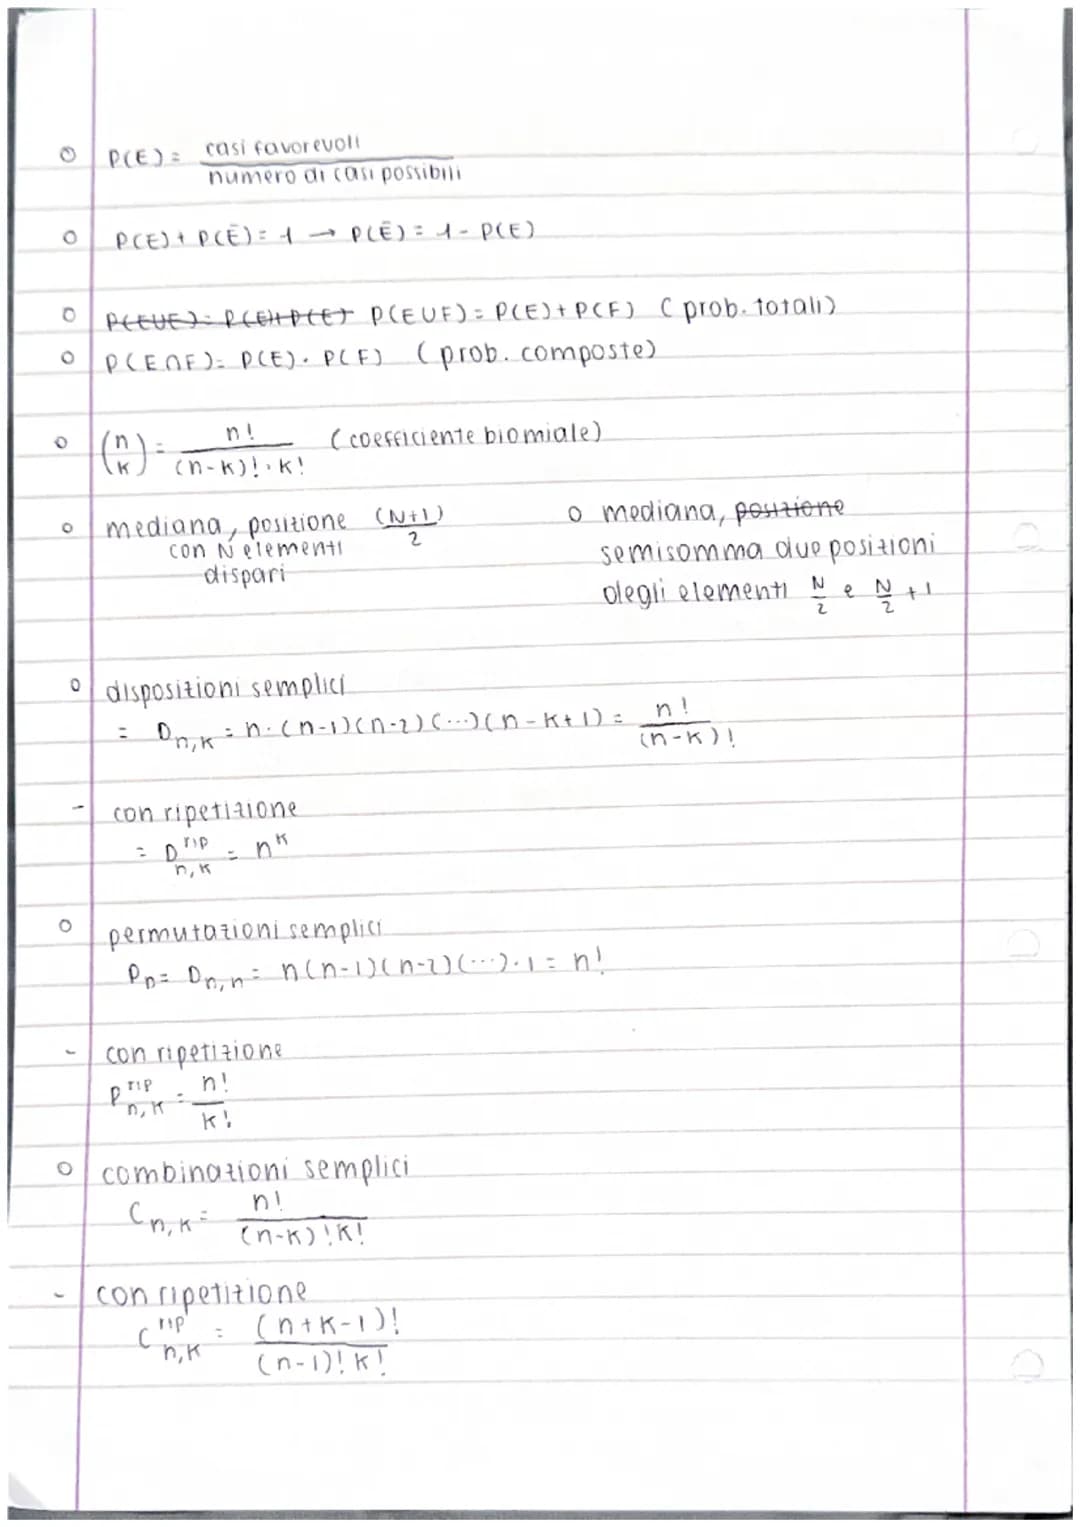 o P(E) = casi favorevoli / numero di casi possibili
o P(E) + P(Ē) = 1 → P(Ē) = 1 - P(E)
o P(EUF) = P(E) + P(F) (prob. totali)
o P(E∩F) = P(E) · P(F) (prob. composte)
o (n k) = n! / (n-k)! · k! (coefficiente biomiale)
o mediana, posizione (N+1) / 2
con N elementi
dispari
o mediana, posizione
semisomma due posizioni
degli elementi N/2 e N/2 + 1
o disposizioni semplici
= Dn,k = n · (n-1)(n-2)(...)(n-k+1) = n! / (n-k)!
- con ripetizione
= D rip n,k = n^k
o permutazioni semplici
Pn = Dn,n = n(n-1)(n-2)(...)·1 = n!
- con ripetizione
P rip n,k = n! / k!
o combinazioni semplici
Cn,k = n! / (n-k)!k!
- con ripetizione
C rip n,k = (n+k-1)! / (n-1)!k!